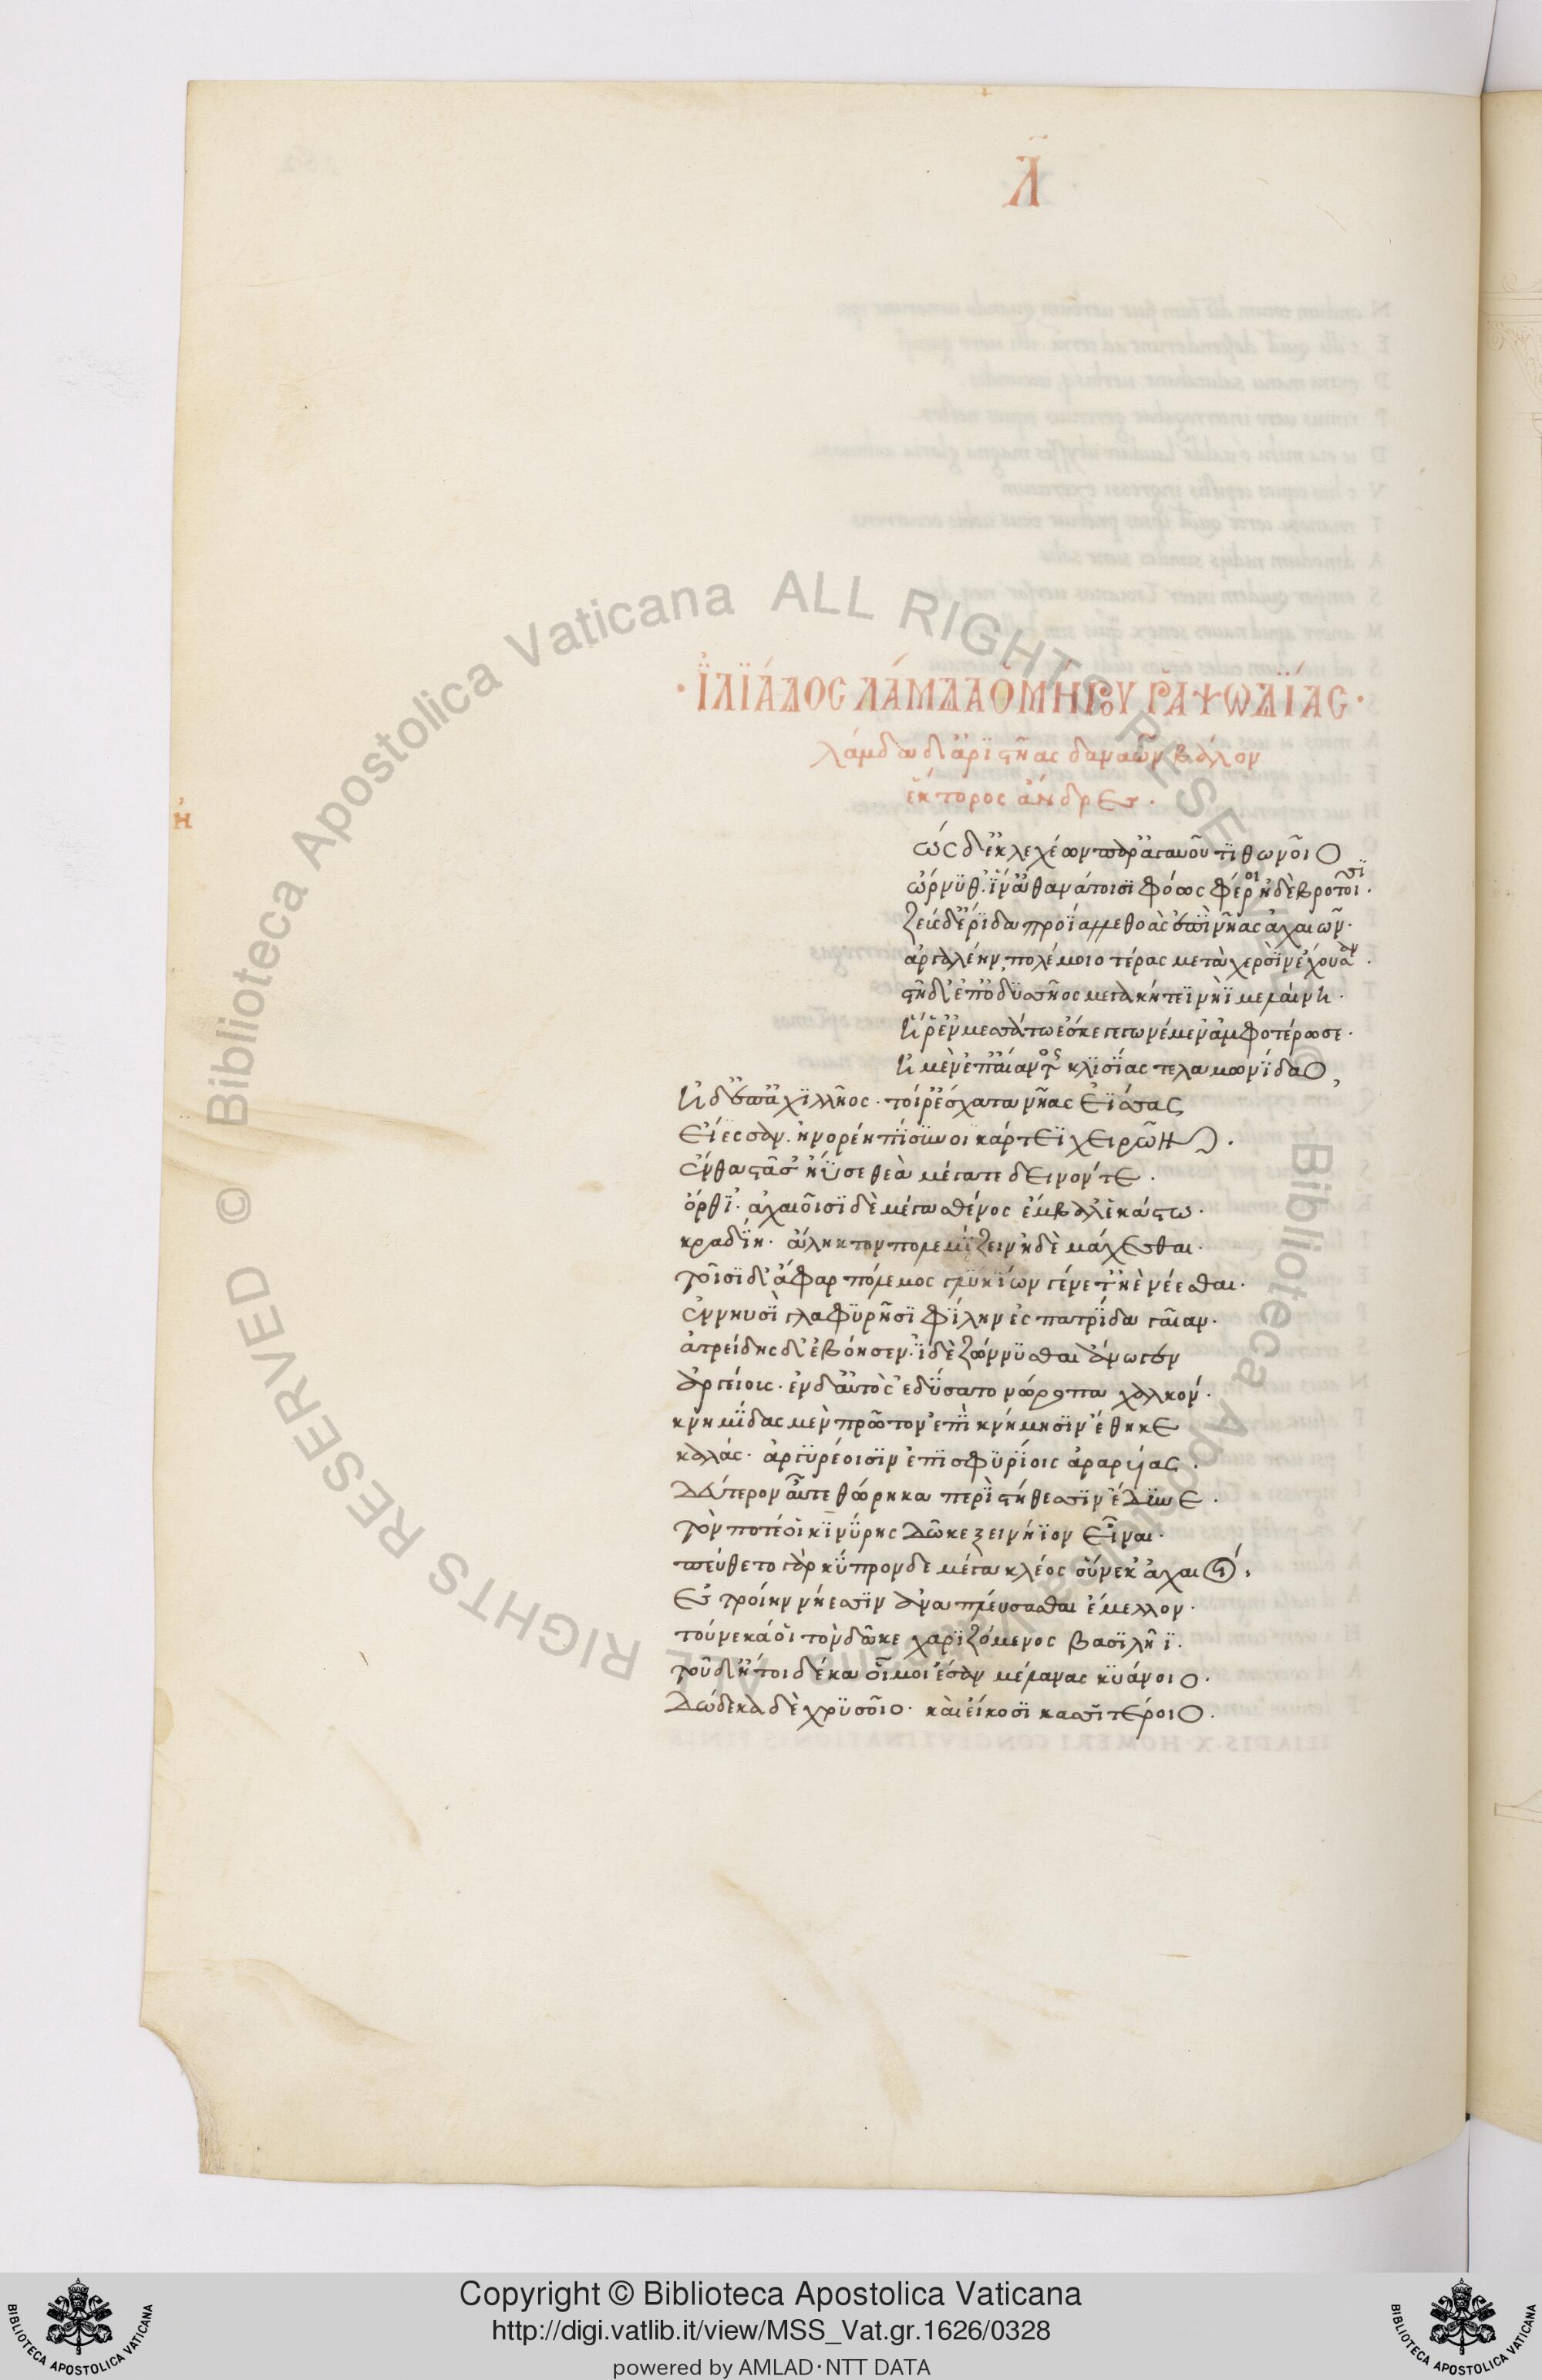 Λ
· ἸΛΙΆΔΟΣ ΛΆΜΔΑ ὉΜΉΡΟΥ ῬΑΨΩΔΊΑΣ ·
λάμδα δ' ἀριστῆας δαναῶν βάλον
ἕκτορος ἄνδρες.
ἠ
ὡς δ' ἐκ λεχέων παρ' ἀγαυοῦ τιθωνοῖο
ὤρνυθ'. ἵν' ἀθανάτοισι φόως φέροι ἠδὲ βροτοῖσι.
ζεὺς δ' ἔριδα προΐαλλε θοὰς ἐπὶ νῆας ἀχαιῶν.
ἀργαλέην πολέμοιο τέρας μετὰ χερσὶν ἔχουσαν.
στῆ δ' ἐπ' ὀδυσσῆος μεγακήτεϊ νηῒ μελαίνη.
ἥ ῥ' ἐν μεσσάτω ἔσκε γεγωνέμεν ἀμφοτέρωσε.
ἠ μὲν ἐπ' αἴαντος κλισίας τελαμωνίδαο,
ἠδ' ἐπ' ἀχιλλῆος. τοί ῥ' ἔσχατα νῆας ἐίσας
εἴρυσαν. ἠνορέη πίσυνοι κάρτεϊ χειρῶν.
ἔνθα στᾶσ' ἤϋσε θεὰ μέγα τε δεινόν τε.
ὄρθι'. ἀχαιοῖσι δὲ μέγα σθένος ἔμβαλ' ἑκάστω.
κραδίη. ἄληκτον πολεμίζειν ἠδὲ μάχεσθαι.
τοῖσι δ' ἄφαρ πόλεμος γλυκίων γένετ' ἠὲ νέεσθαι.
ἐν νηυσὶ γλαφυρῆσι φίλην ἐς πατρίδα γαῖαν.
ἀτρείδης δ' ἐβόησεν. ἰδὲ ζώννυσθαι ἄνωγεν
ἀργείοις. ἐν δ' αὐτὸς ἐδύσατο νώροπα χαλκόν.
κνημῖδας μὲν πρῶτον ἐπὶ κνήμησιν ἔθηκε
καλάς. ἀργυρέοισιν ἐπισφυρίοις ἀραρυίας.
δεύτερον αὖτε θώρηκα περὶ στήθεσσιν ἔδυνε.
τόν ποτέ οἱ κινύρης δῶκε ξεινήϊον εἶναι.
πεύθετο γὰρ κύπρονδε μέγα κλέος οὕνεκ' ἀχαιοί,
ἐς τροίην νήεσσιν ἀναπλεύσεσθαι ἔμελλον.
τούνεκά οἱ τὸν δῶκε χαριζόμενος βασιλῆϊ.
τοῦ δ' ἤτοι δέκα οἶμοι ἔσαν μέλανος κυάνοιο.
δώδεκα δὲ χρυσοῖο. καὶ εἴκοσι κασσιτέροιο.
Copyright © Biblioteca Apostolica Vaticana
http://digi.vatlib.it/view/MSS_Vat.gr.1626/0328
powered by AMLAD·NTT DATA
BIBLIOTECA APOSTOLICA VATICANA
BIBLIOTECA APOSTOLICA VATICANA
© Biblioteca Apostolica Vaticana ALL RIGHTS RESERVED
© Biblioteca Apostolica Vaticana ALL RIGHTS RESERVED